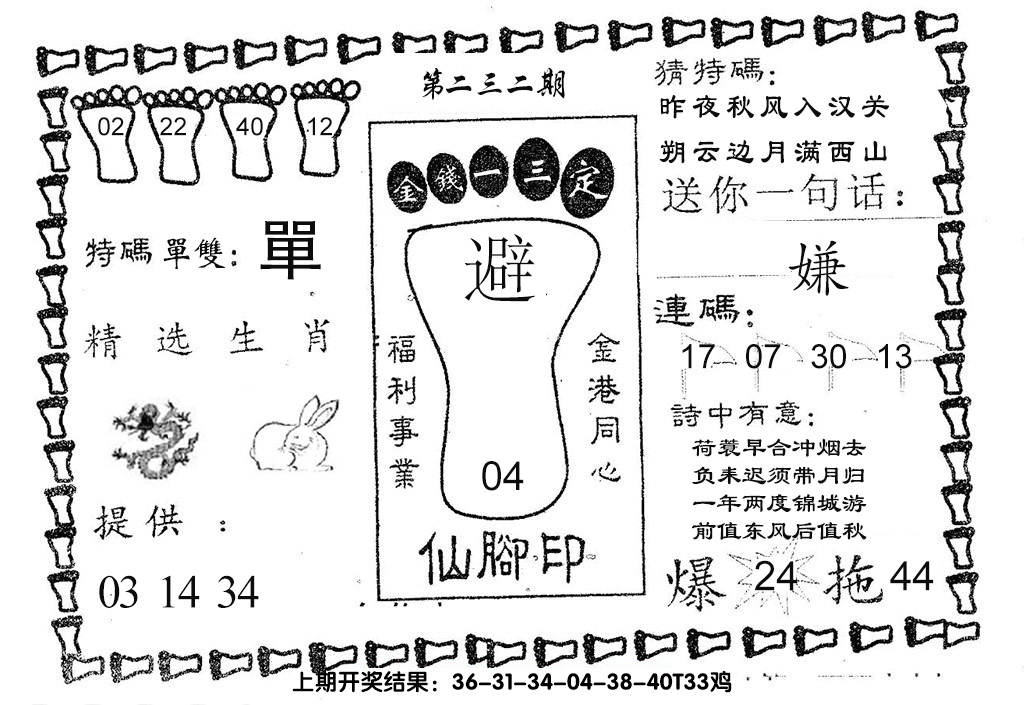 第二三二期
02 22 40 12
特碼單雙：單
精选生肖
提供：
03 14 34
金錢一三定
避
福利事業
金港同心
04
仙腳印
猜特碼：
昨夜秋风入汉关
朔云边月满西山
送你一句话：
嫌
連碼：
17 07 30 13
詩中有意：
荷蓑早合冲烟去
负耒迟须带月归
一年两度锦城游
前值东风后值秋
爆 24 拖 44
上期开奖结果：36-31-34-04-38-40T33鸡